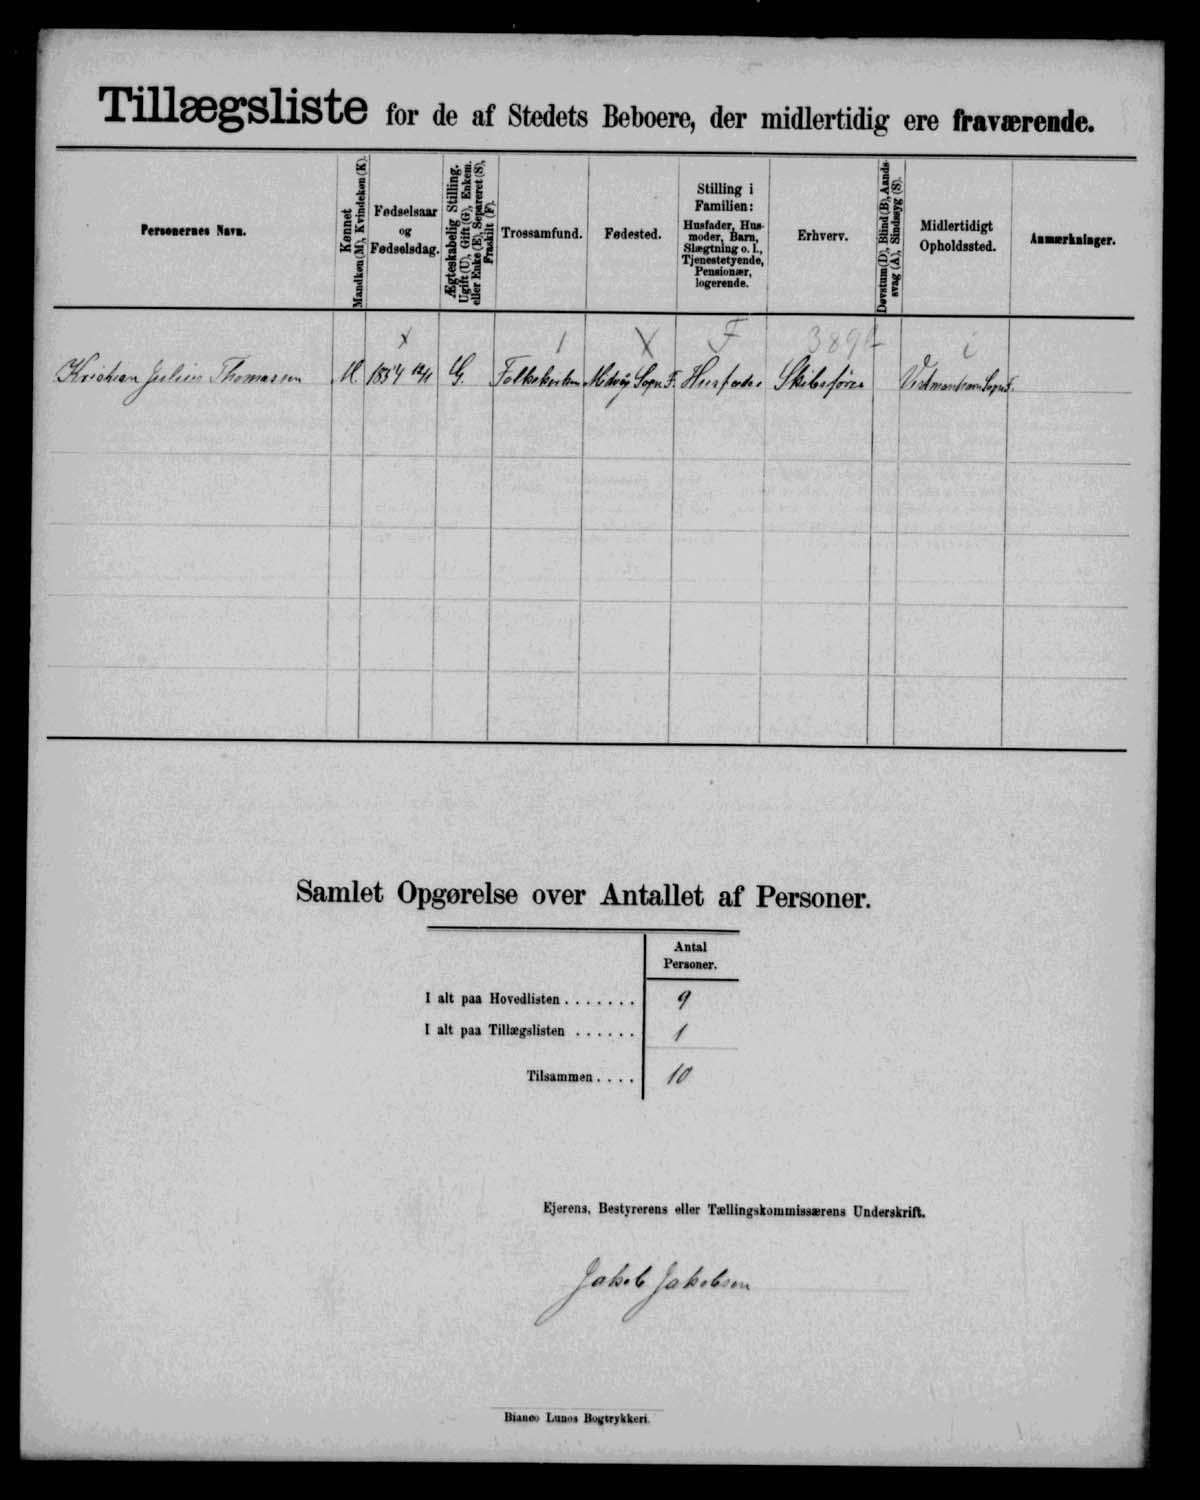 Tillægsliste for de af Stedets Beboere, der midlertidig ere fraværende.
Personernes Navn.
Kønnet
Mandkøn (M), Kvindekøn (K).
Fødselsaar
og
Fødselsdag.
Ægteskabelig Stilling.
Ugift (U), Gift (G), Enkem.
eller Enke (E), Separeret (S),
Fraskilt (F).
Trossamfund.
Fødested.
Stilling i
Familien:
Husfader, Hus-
moder, Barn,
Slægtning o. l.,
Tjenestetyende,
Pensionær,
logerende.
Erhverv.
Døvstum (D), Blind (B), Aands-
svag (A), Sindssyg (S).
Midlertidigt
Opholdssted.
Anmærkninger.
x 1 X F 389 i
Kristian Julius Thomassen M. 1854 G. Folkekirken Midvåg Sogn F. Husfader Skibsfører Vestmanhavn Sogn F.
Samlet Opgørelse over Antallet af Personer.
Antal
Personer.
I alt paa Hovedlisten . . . . . . . 9
I alt paa Tillægslisten . . . . . . 1
Tilsammen . . . . 10
Ejerens, Bestyrerens eller Tællingskommissærens Underskrift.
Jakob Jakobsen
Bianco Lunos Bogtrykkeri.